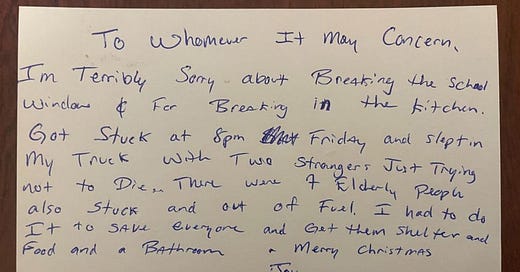 To Whomever It May Concern,
I'm Terribly Sorry about Breaking the School
Window & For Breaking in the Kitchen.
Got Stuck at 8pm Friday and slept in
My Truck with Two Strangers Just Trying
not to Die... There were 7 Elderly People
also Stuck and out of Fuel. I had to do
It to save everyone and Get them Shelter and
Food and a Bathroom. Merry Christmas
Jay